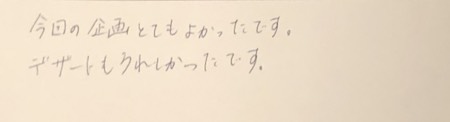 今回の企画とてもよかったです。
デザートもうれしかったです。